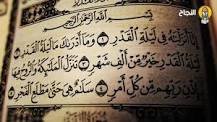 النجاح
بِسْمِ اللَّهِ الرَّحْمَٰنِ الرَّحِيمِ
إِنَّا أَنزَلْنَاهُ فِي لَيْلَةِ الْقَدْرِ ١ وَمَا أَدْرَاكَ مَا لَيْلَةُ الْقَدْرِ ٢
لَيْلَةُ الْقَدْرِ خَيْرٌ مِّنْ أَلْفِ شَهْرٍ ٣ تَنَزَّلُ الْمَلَائِكَةُ وَالرُّوحُ فِيهَا
بِإِذْنِ رَبِّهِم مِّن كُلِّ أَمْرٍ ٤ سَلَامٌ هِيَ حَتَّىٰ مَطْلَعِ الْفَجْرِ ٥